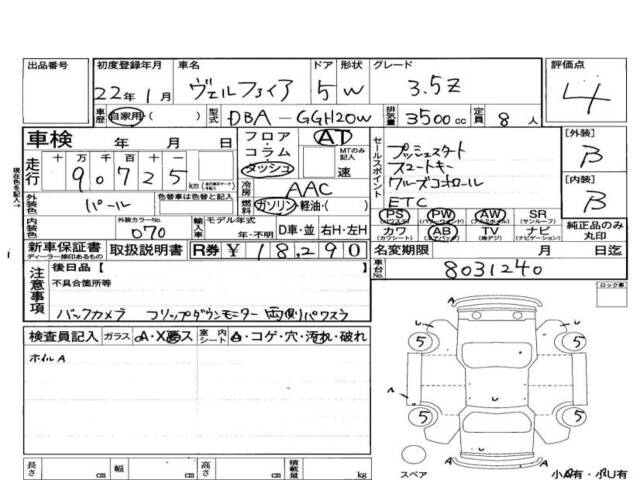 出品番号 初度登録年月 車名 ドア 形状 グレード 評価点
22年1月 ヴェルファイア 5 W 3.5Z 4
車歴 自家用( ) 型式 DBA-GGH20W 排気量 3500cc 定員 8人
車検 年 月 日 フロア・コラム・ダッシュ AT MTのみ記入 速
現在色を記入→
走行 十万千百十一
90725 km
セールスポイント
プッシュスタート
スマートキー
クルーズコントロール
ETC
[外装] B
[内装] B
冷房 AAC
外装色 パール 色替車は色替と記入 燃料 ガソリン・軽油・( )
PS (パワステ) PW (パワーウインド) AW (アルミホイル) SR (サンルーフ)
カワ (カワシート) AB (エアバッグ) TV (地デジ) ナビ (ナビゲーション) 純正品のみ丸印
内装色 外装カラーNo. 070 輸入車 モデル年式 年・不明 D車・並 右H・左H
新車保証書 ディーラー捺印あるもの 取扱説明書 R券 ¥18,290 名変期限 月 日迄
車台No. 8031240
注意事項 後日品【
不具合箇所等
バックカメラ フリップダウンモニター 両側パワスラ
ロック車
検査員記入 ガラス A・X要ス 室内シート A・コゲ・穴・汚れ・破れ
ホイルA
A
U U
5 5
A A
5 5
U
長さ cm 幅 cm 高さ cm 積載量 kg
スペア 小A有・小U有